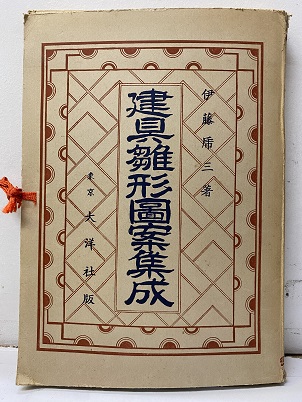 伊藤乕三著
建具雛形圖案集成
東京 大洋社版